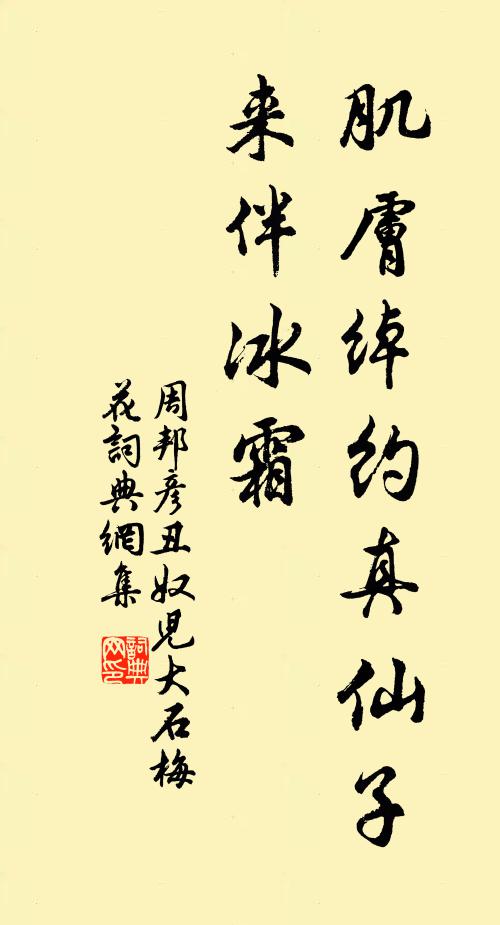 肌膚綽約真仙子
来伴冰霜
周邦彦丑奴兒大石梅
花詞典網集
詞典
网印